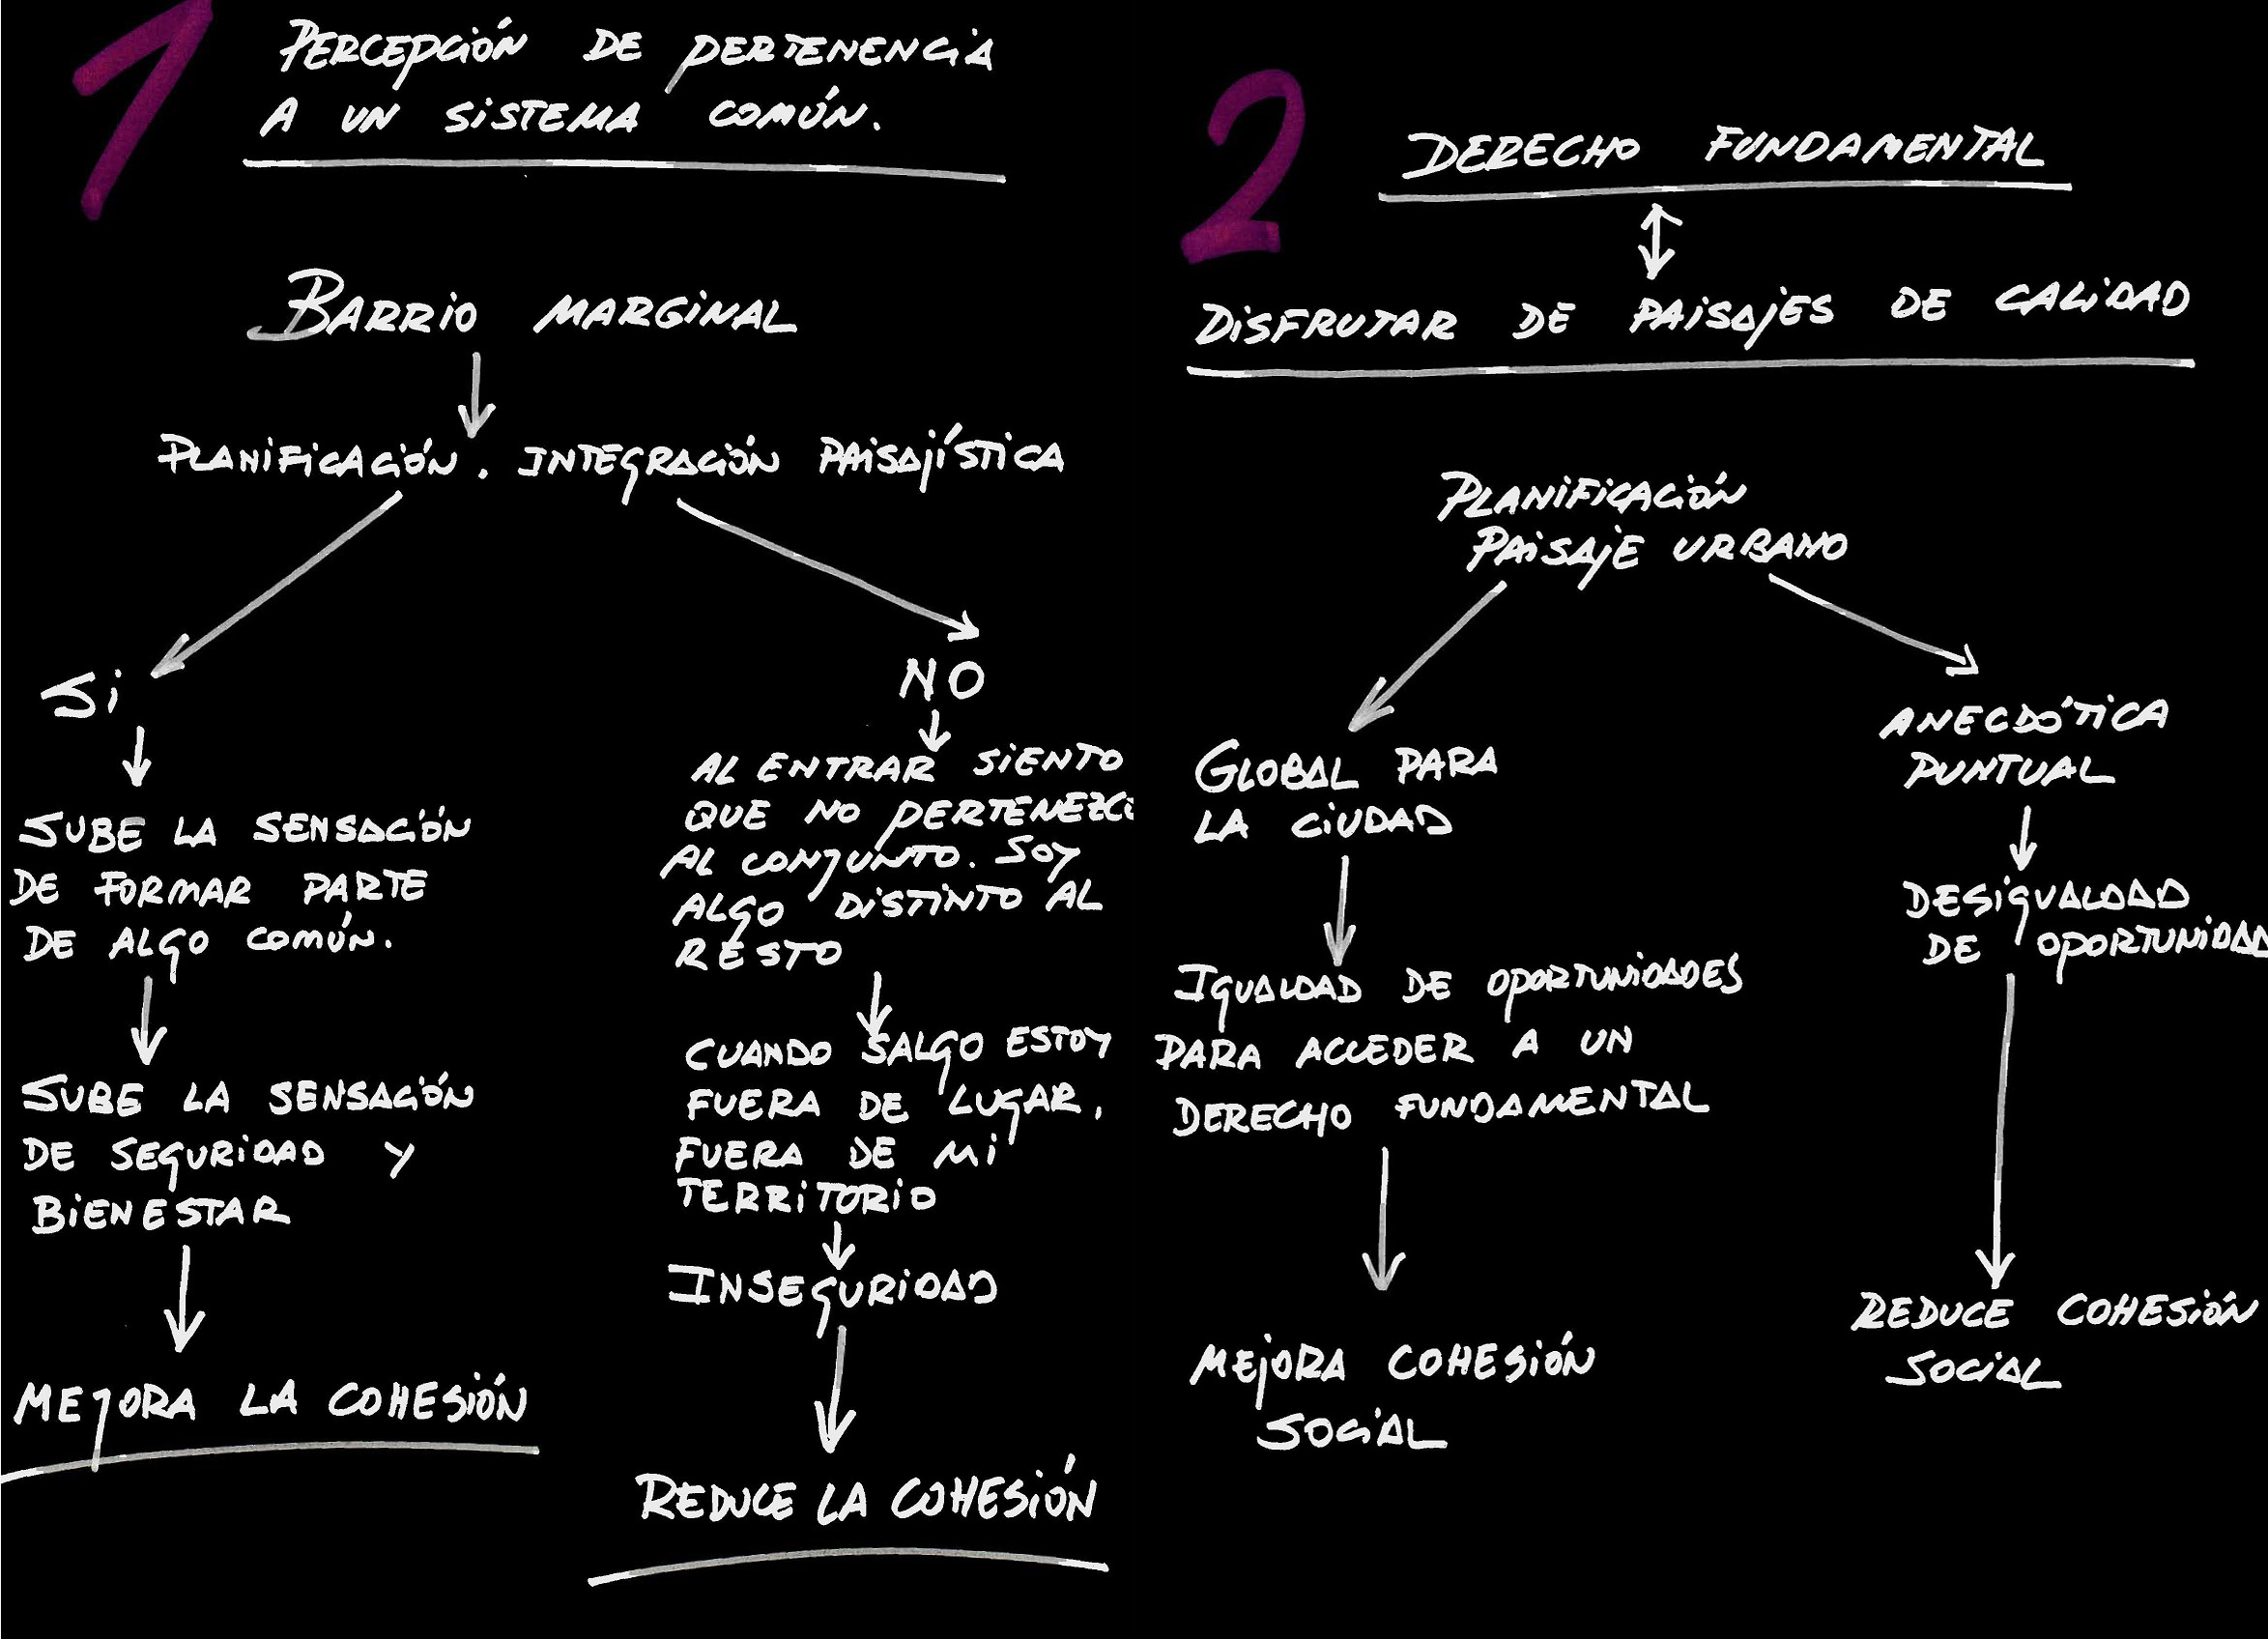 1
PERCEPCIÓN DE PERTENENCIA
A UN SISTEMA COMÚN.
BARRIO MARGINAL
PLANIFICACIÓN. INTEGRACIÓN PAISAJÍSTICA
Si
SUBE LA SENSACIÓN
DE FORMAR PARTE
DE ALGO COMÚN.
SUBE LA SENSACIÓN
DE SEGURIDAD Y
BIENESTAR
MEJORA LA COHESIÓN
NO
AL ENTRAR SIENTO
QUE NO
AL CONJUNTO. SOY
ALGO DISTINTO AL
RESTO
CUANDO SALGO ESTOY
FUERA DE LUGAR,
FUERA DE MI
TERRITORIO
INSEGURIDAD
REDUCE LA COHESIÓN
2
DERECHO FUNDAMENTAL
DISFRUTAR DE PAISAJES DE CALIDAD
PLANIFICACIÓN
PAISAJE URBANO
GLOBAL PARA
LA CIUDAD
IGUALDAD DE OPORTUNIDADES
PARA ACCEDER A UN
DERECHO FUNDAMENTAL
MEJORA COHESIÓN
SOCIAL
ANECDÓTICA
PUNTUAL
DESIGUALDAD
DE OPORTUNIDAD
REDUCE COHESIÓN
SOCIAL